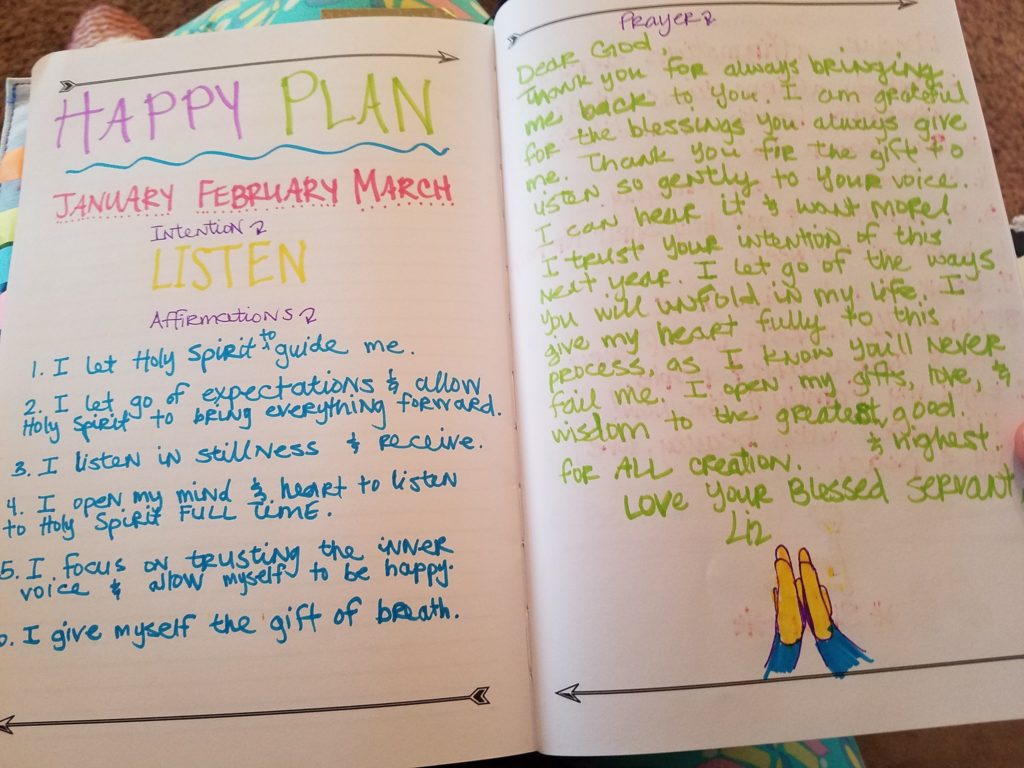 HAPPY PLAN
JANUARY FEBRUARY MARCH
Intention
LISTEN
Affirmations
1. I let Holy Spirit to guide me.
2. I let go of expectations & allow
Holy Spirit to bring everything forward.
3. I listen in stillness & receive.
4. I open my mind & heart to listen
to Holy Spirit FULL TIME.
5. I focus on trusting the inner
voice & allow myself to be happy.
6. I give myself the gift of breath.
Prayer
Dear God,
Thank you for always bringing
me back to you. I am grateful
for the blessings you always give
me. Thank you for the gift to
listen so gently to your voice.
I can hear it & want more!
I trust your intention of this
next year. I let go of the ways
you will unfold in my life. I
give my heart fully to this
process, as I know you'll never
fail me. I open my gifts, love, &
wisdom to the greatest good.
& highest.
for ALL creation.
Love your Blessed servant
Liz